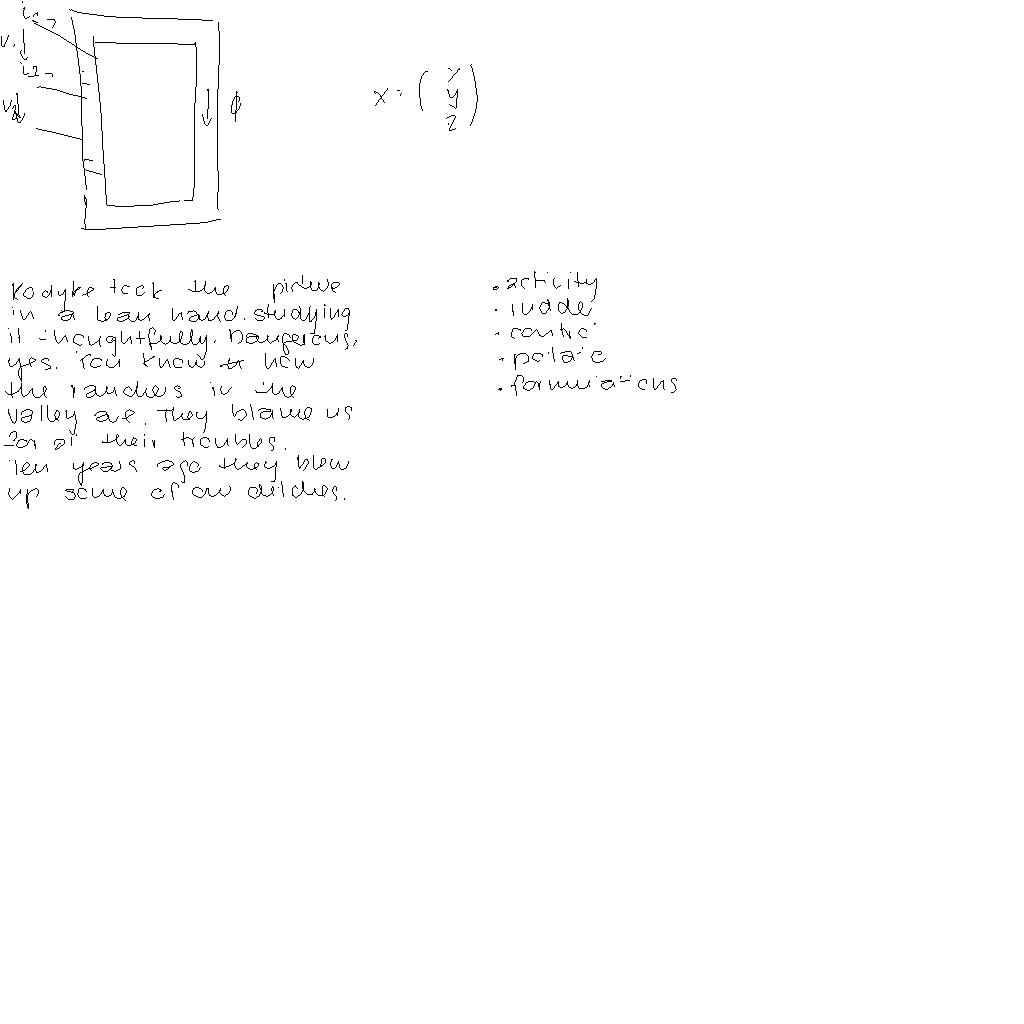 i₁
v₁
i₂
v₂
ϕ
x = ( x
y
z )
Kodyke took the picture
in a lean hand. studying
it thoughtfully. Dangerous,
yes. You know how
the ranchers in the
valley are. They blame us
for al their troubles.
Ten years ago they blew
up some of our ditches.
· activity
· rudder
· control
· potato
· formulations